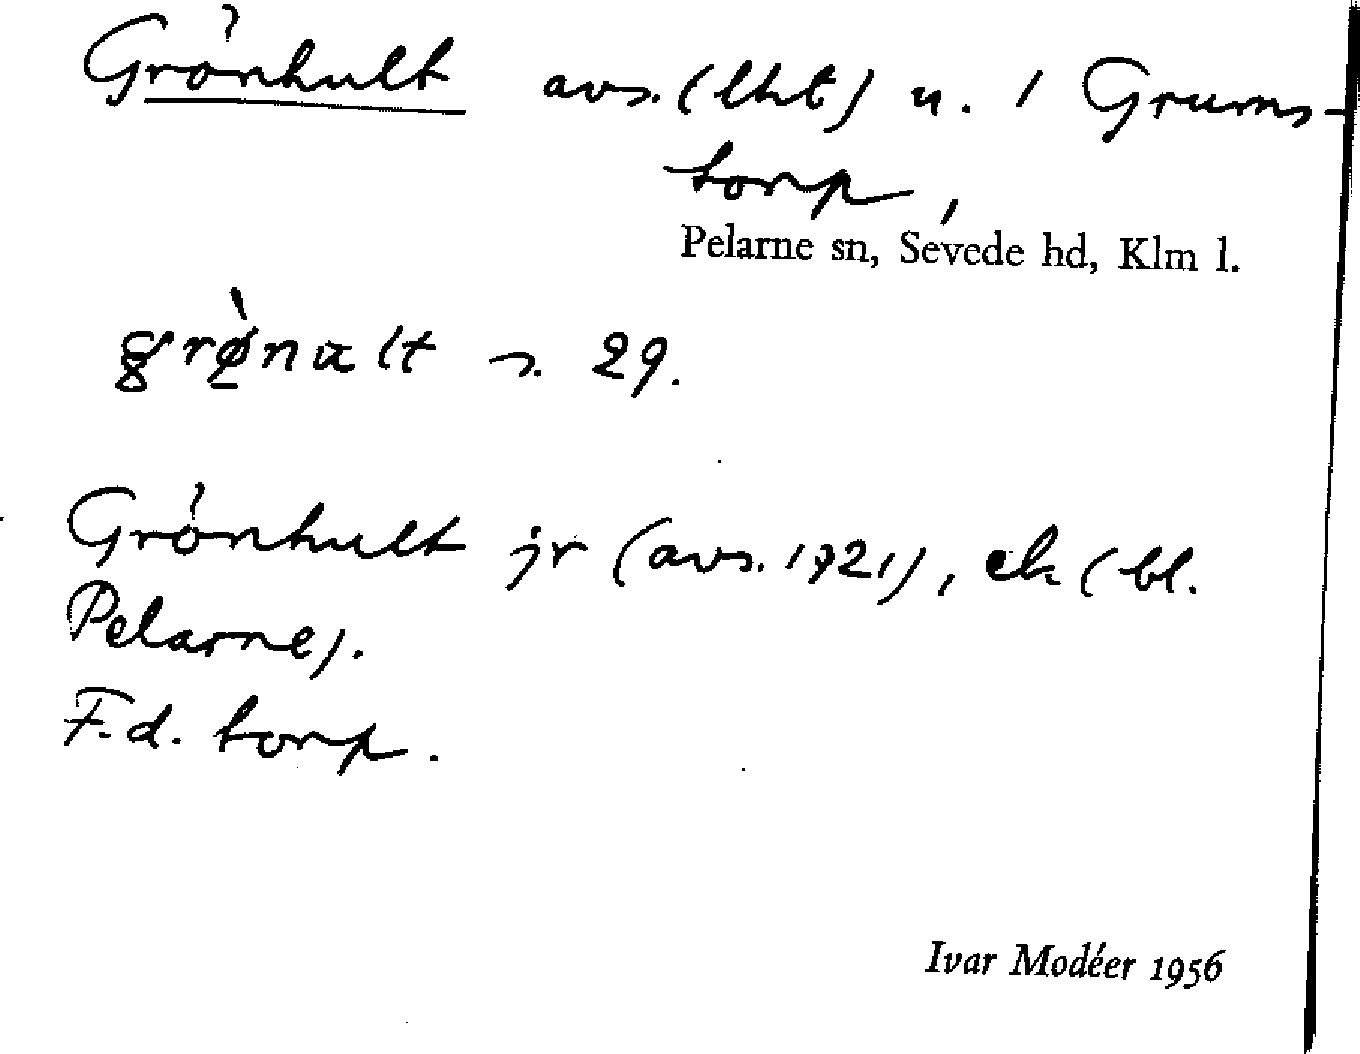 Grönhult avs. (lht) u. 1 Grums-
torp,
Pelarne sn, Sevede hd, Klm l.
grø̀nalt s. 29.
Grönhult jr (avs. 1721), ek (bl.
Pelarne).
F.d. torp.
Ivar Modéer 1956